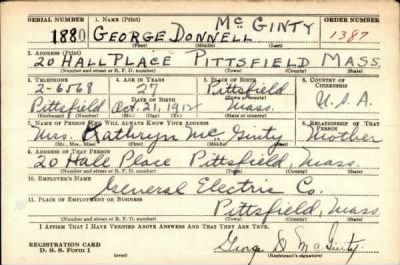 SERIAL NUMBER 1. NAME (Print) ORDER NUMBER
1880 GEORGE DONNELL MCGINTY 1387
(First) (Middle) (Last)
2. ADDRESS (Print)
20 HALL PLACE PITTSFIELD MASS.
(Number and street or R. F. D. number) (Town) (County) (State)
3. TELEPHONE 4. AGE IN YEARS 5. PLACE OF BIRTH 6. COUNTRY OF CITIZENSHIP
2-6568 27 Pittsfield
DATE OF BIRTH (Town or county)
Pittsfield Oct. 21, 1912 Mass. U.S.A.
(Exchange) (Number) (Mo.) (Day) (Yr.) (State or country)
7. NAME OF PERSON WHO WILL ALWAYS KNOW YOUR ADDRESS 8. RELATIONSHIP OF THAT PERSON
Mrs. Kathryn McGinty Mother
(Mr., Mrs., Miss) (First) (Middle) (Last)
9. ADDRESS OF THAT PERSON
20 Hall Place Pittsfield, Mass.
(Number and street or R. F. D. number) (Town) (County) (State)
10. EMPLOYER'S NAME
General Electric Co.
11. PLACE OF EMPLOYMENT OR BUSINESS
Pittsfield, Mass.
(Number and street or R. F. D. number) (Town) (County) (State)
I AFFIRM THAT I HAVE VERIFIED ABOVE ANSWERS AND THAT THEY ARE TRUE.
REGISTRATION CARD
D. S. S. Form 1
George D. McGinty
(Registrant's signature)